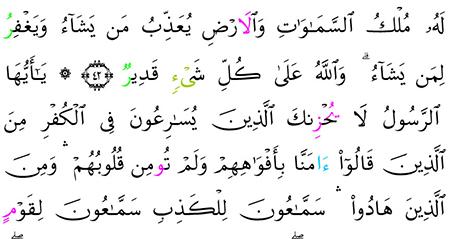 لَهُۥ مُلْكُ ٱلسَّمَٰوَٰتِ وَٱلَارْضِ يُعَذِّبُ مَن يَشَآءُ وَيَغْفِرُ
لِمَن يَشَآءُ ۗ وَٱللَّهُ عَلَىٰ كُلِّ شَےْءٍ قَدِيرٌ ٤٢ ۞ يَٰٓأَيُّهَا
ٱلرَّسُولُ لَا يُحْزِنكَ ٱلَّذِينَ يُسَٰرِعُونَ فِى ٱلْكُفْرِ مِنَ
ٱلَّذِينَ قَالُوٓاْ ءَامَنَّا بِأَفْوَٰهِهِمْ وَلَمْ تُومِن قُلُوبُهُمْ ۛ وَمِنَ
ٱلَّذِينَ هَادُواْ ۛ سَمَّٰعُونَ لِلْكَذِبِ سَمَّٰعُونَ لِقَوْمٍ